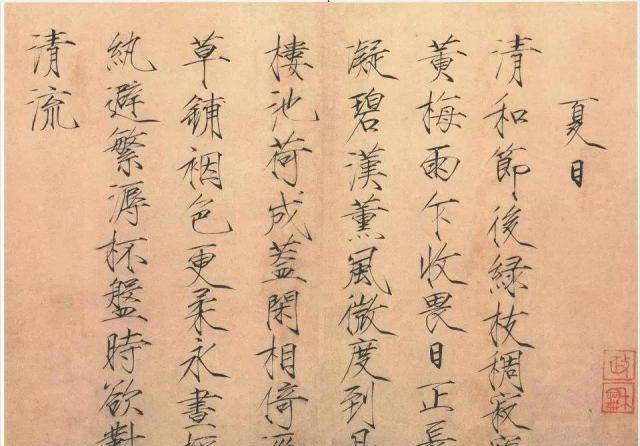 夏日
清和節後緑枝稠寂
黃梅雨乍收畏日正長
凝碧漢薰風微度到
樓池荷成蓋閑相倚
草鋪裀色更柔永晝
紈避繁溽杯盤時欲對
清流
政龢